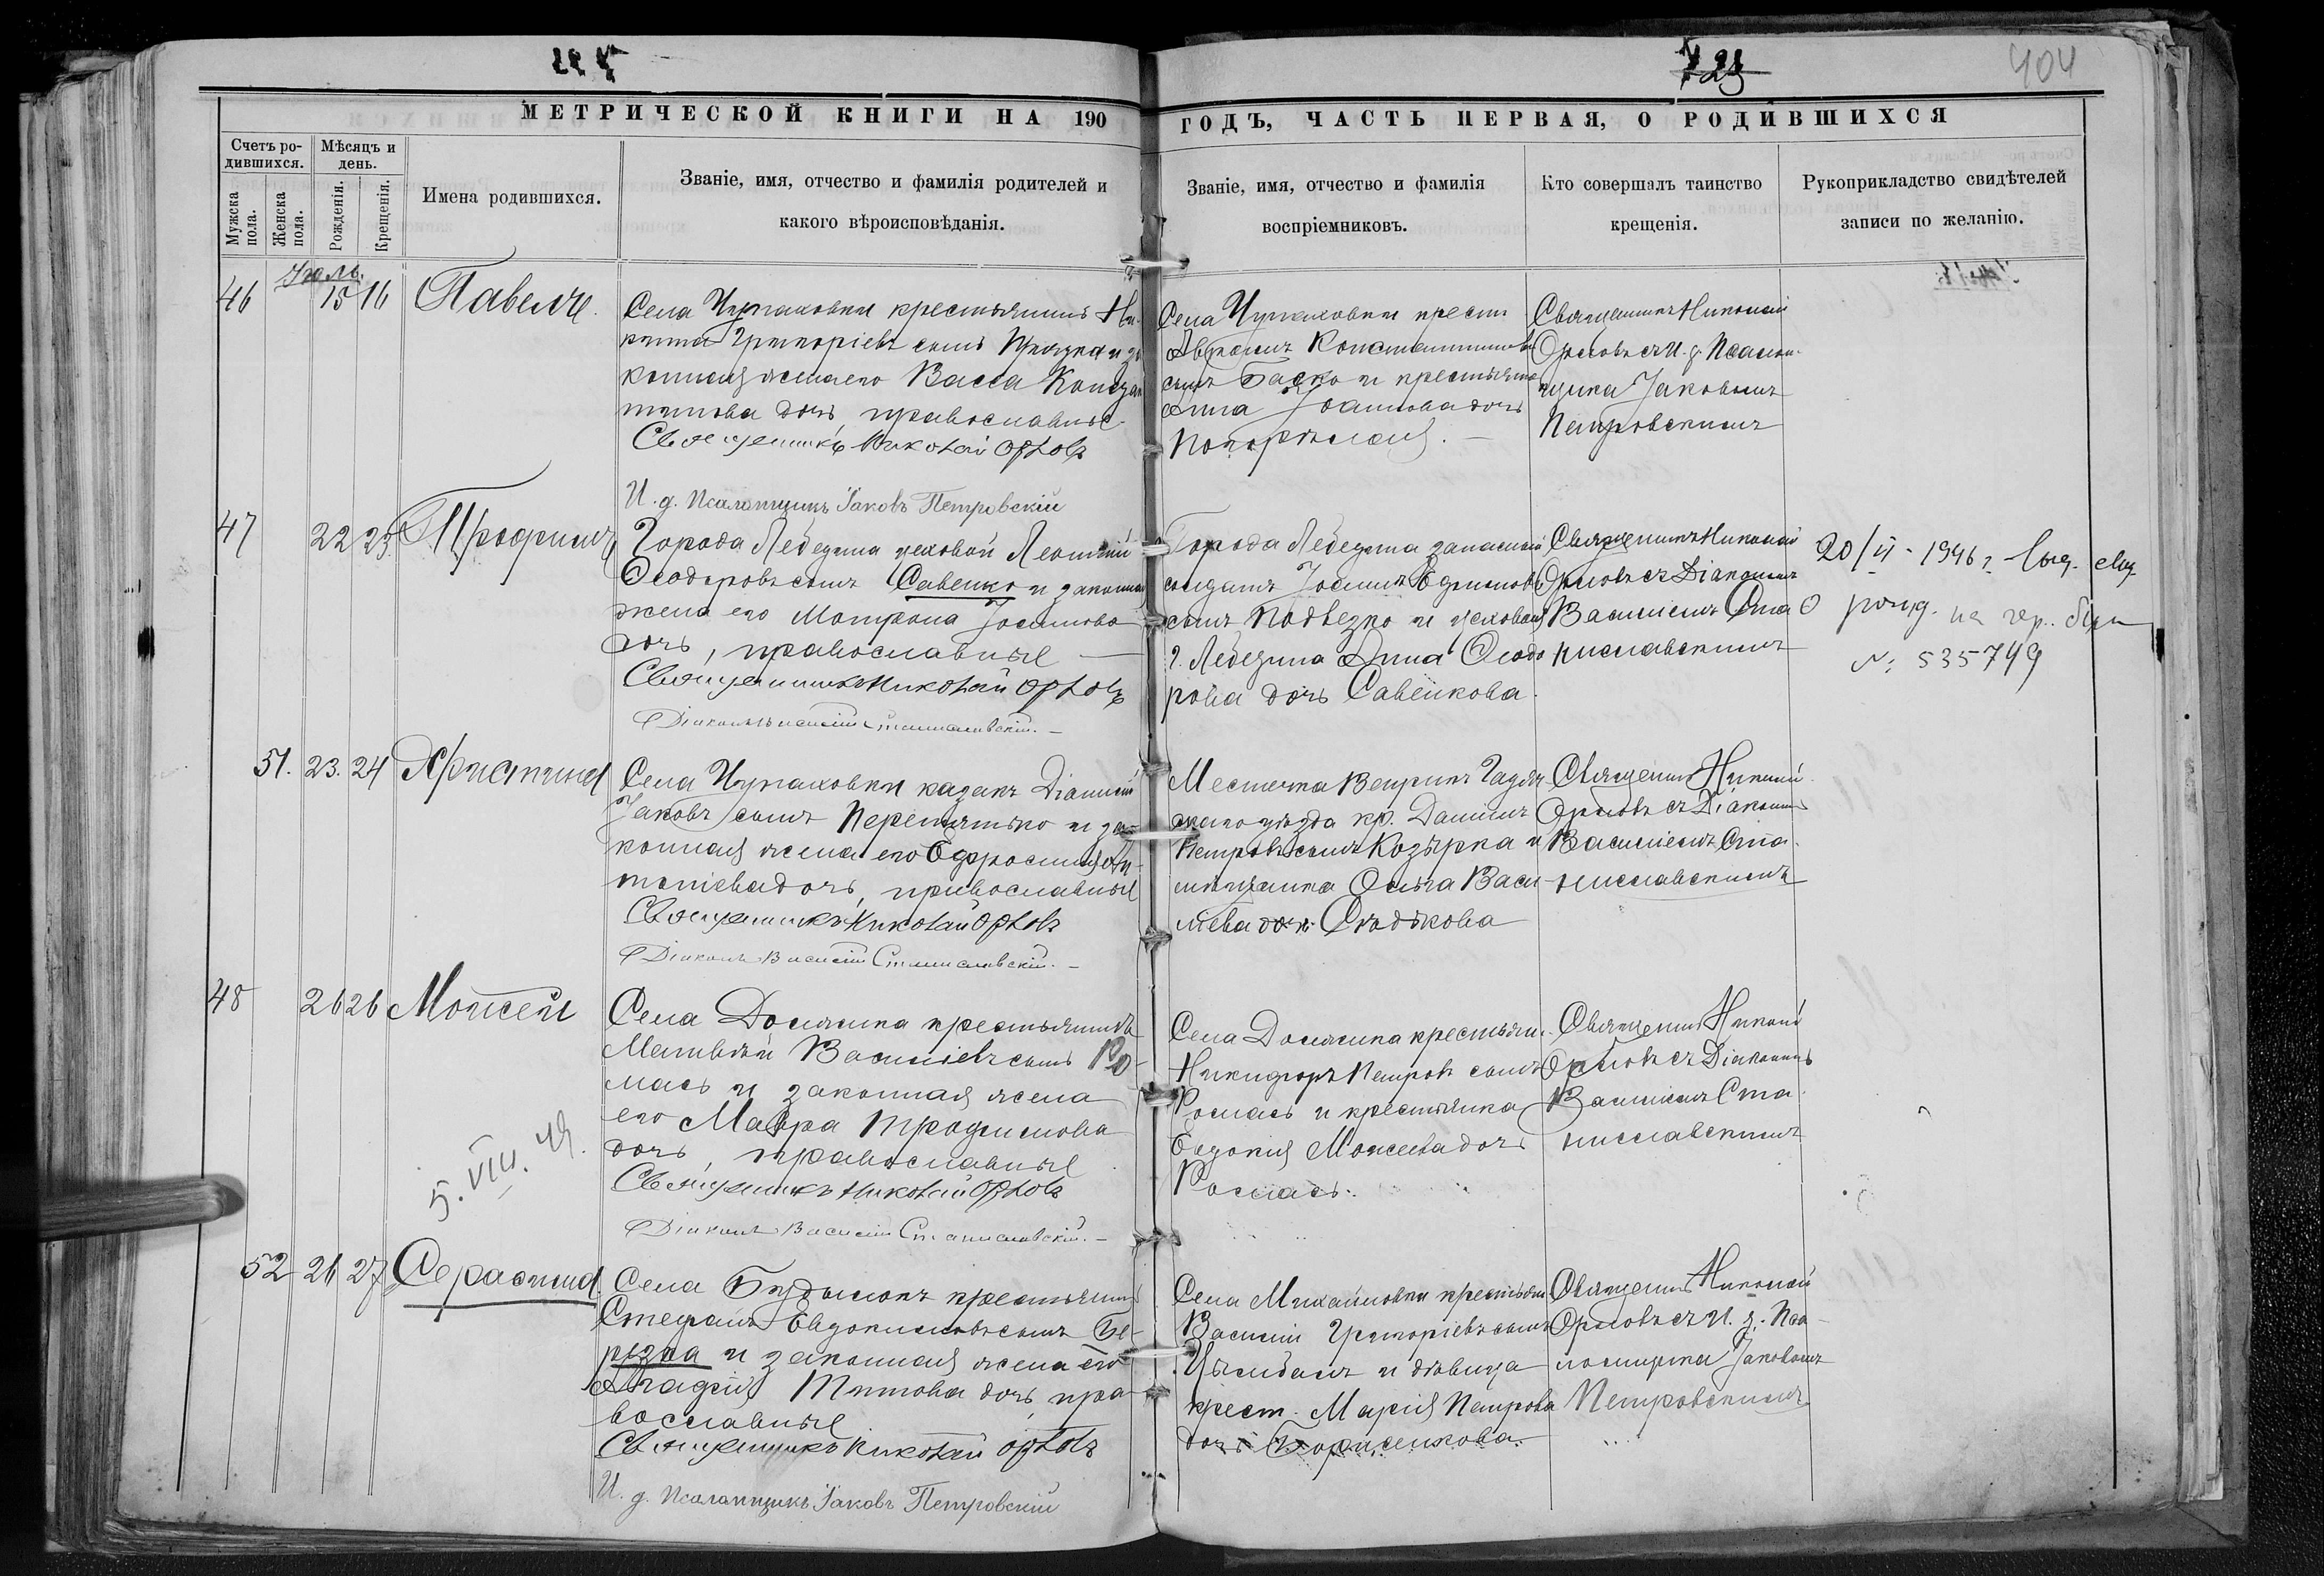 404
МЕТРИЧЕСКОЙ КНИГИ НА 190
ГОДЪ, ЧАСТЬ ПЕРВАЯ, О РОДИВШИХСЯ
Счетъ ро-
дившихся.
Мѣсяцъ и
день.
Мужска
пола.
Женска
пола.
Рожденія.
Крещенія.
Имена родившихся.
Званіе, имя, отчество и фамилія родителей и
какого вѣроисповѣданія.
Званіе, имя, отчество и фамилія
воспріемниковъ.
Кто совершалъ таинство
крещенія.
Рукоприкладство свидѣтелей
записи по желанію.
Іюль.
46 15 16 Павелъ.
Села Чупаховки крестьянинъ Ни-
кита Григоріевъ сынъ и за
конная жена его Васса Констан
тинова дочь, православные
Священникъ Николай Орловъ
И. д. Псаломщикъ Іаковъ Петровскій
Села Чупаховки крест.
Константиновъ
сынъ Баско и крестьянка
Анна Іоаннова дочь
Погорѣлая.
Священникъ Николай
Орловъ съ И. д. Псалом-
щика Іаковомъ
Петровскимъ
47 22 23 Трофимъ
Города Лебедина цеховой Леонтій
Ѳеодоровъ сынъ Савенко и законная
жена его Матрона Іосифова
дочь, православные
Священникъ Николай Орловъ
Діаконъ Василій Станиславскій.
Города Лебедина запасной
солдатъ Ефимовъ
сынъ Подвезко и цеховая
г. Лебедина Анна Ѳеодо
рова дочь Савенкова.
Священникъ Николай
Орловъ съ Діакономъ
Василіемъ Ста
ниславскимъ
20/II - 1946 г. выд. свид.
о рожд. на гер. бум
№ 535749
51. 23. 24 Христина
Села Чупаховки казакъ Діонисій
Іаковъ сынъ Перепятько и за-
конная жена его Ефросинія Ан-
тоніева дочь, православные
Священникъ Николай Орловъ
Діаконъ Василій Станиславскій.
Местечка Веприкъ Гадяч
скаго уѣзда кр. Даніилъ
Петровъ сынъ Козырка и
мѣщанка Ольга Васи-
лиева дочь Сѣдькова
Священник Николай
Орловъ съ Діакономъ
Василіемъ Ста-
ниславскимъ
48 26 26 Моисей
Села Должика крестьянинъ
Матвѣй Василіевъ сынъ Ро-
мась и законная жена
его Мавра Трофимова
дочь, православные
Священникъ Николай Орловъ
Діаконъ Василій Станиславскій.
5. VIII. 49.
Села Должика крестьян.
Никифоръ Петровъ сынъ
Ромась и крестьянка
Евдокія Моисеева дочь
Ромась.
Священник Николай
Орловъ съ Діакономъ
Василіемъ Ста-
ниславскимъ
52 26 27 Серафима
Села Будылокъ крестьянинъ
Стефанъ Евдокимовъ сынъ Бе-
резка и законная жена его
Агафія Титова дочь, пра-
вославные
Священникъ Николай Орловъ
И. д. Псаломщикъ Іаковъ Петровскій
Села Михайловки крестьян
Василій Григоріевъ сынъ
Цымбалъ и дѣвица
крест. Марія Петрова
дочь Борисенкова.
Священник Николай
Орловъ съ И. д. Пса-
ломщика Іаковомъ
Петровскимъ